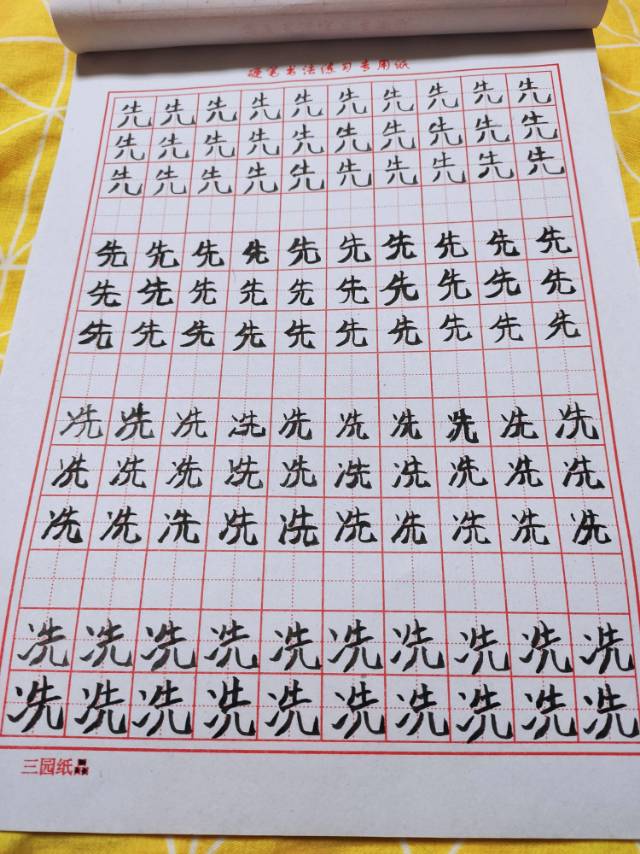 硬笔书法练习专用纸
先先先先先先先先先先
先先先先先先先先先先
先先先先先先先先先先
先先先先先先先先先先
先先先先先先先先先先
先先先先先先先先先先
冼冼冼冼冼冼冼冼冼冼
冼冼冼冼冼冼冼冼冼冼
冼冼冼冼冼冼冼冼冼冼
冼冼冼冼冼冼冼冼冼冼
冼冼冼冼冼冼冼冼冼冼
三园纸品